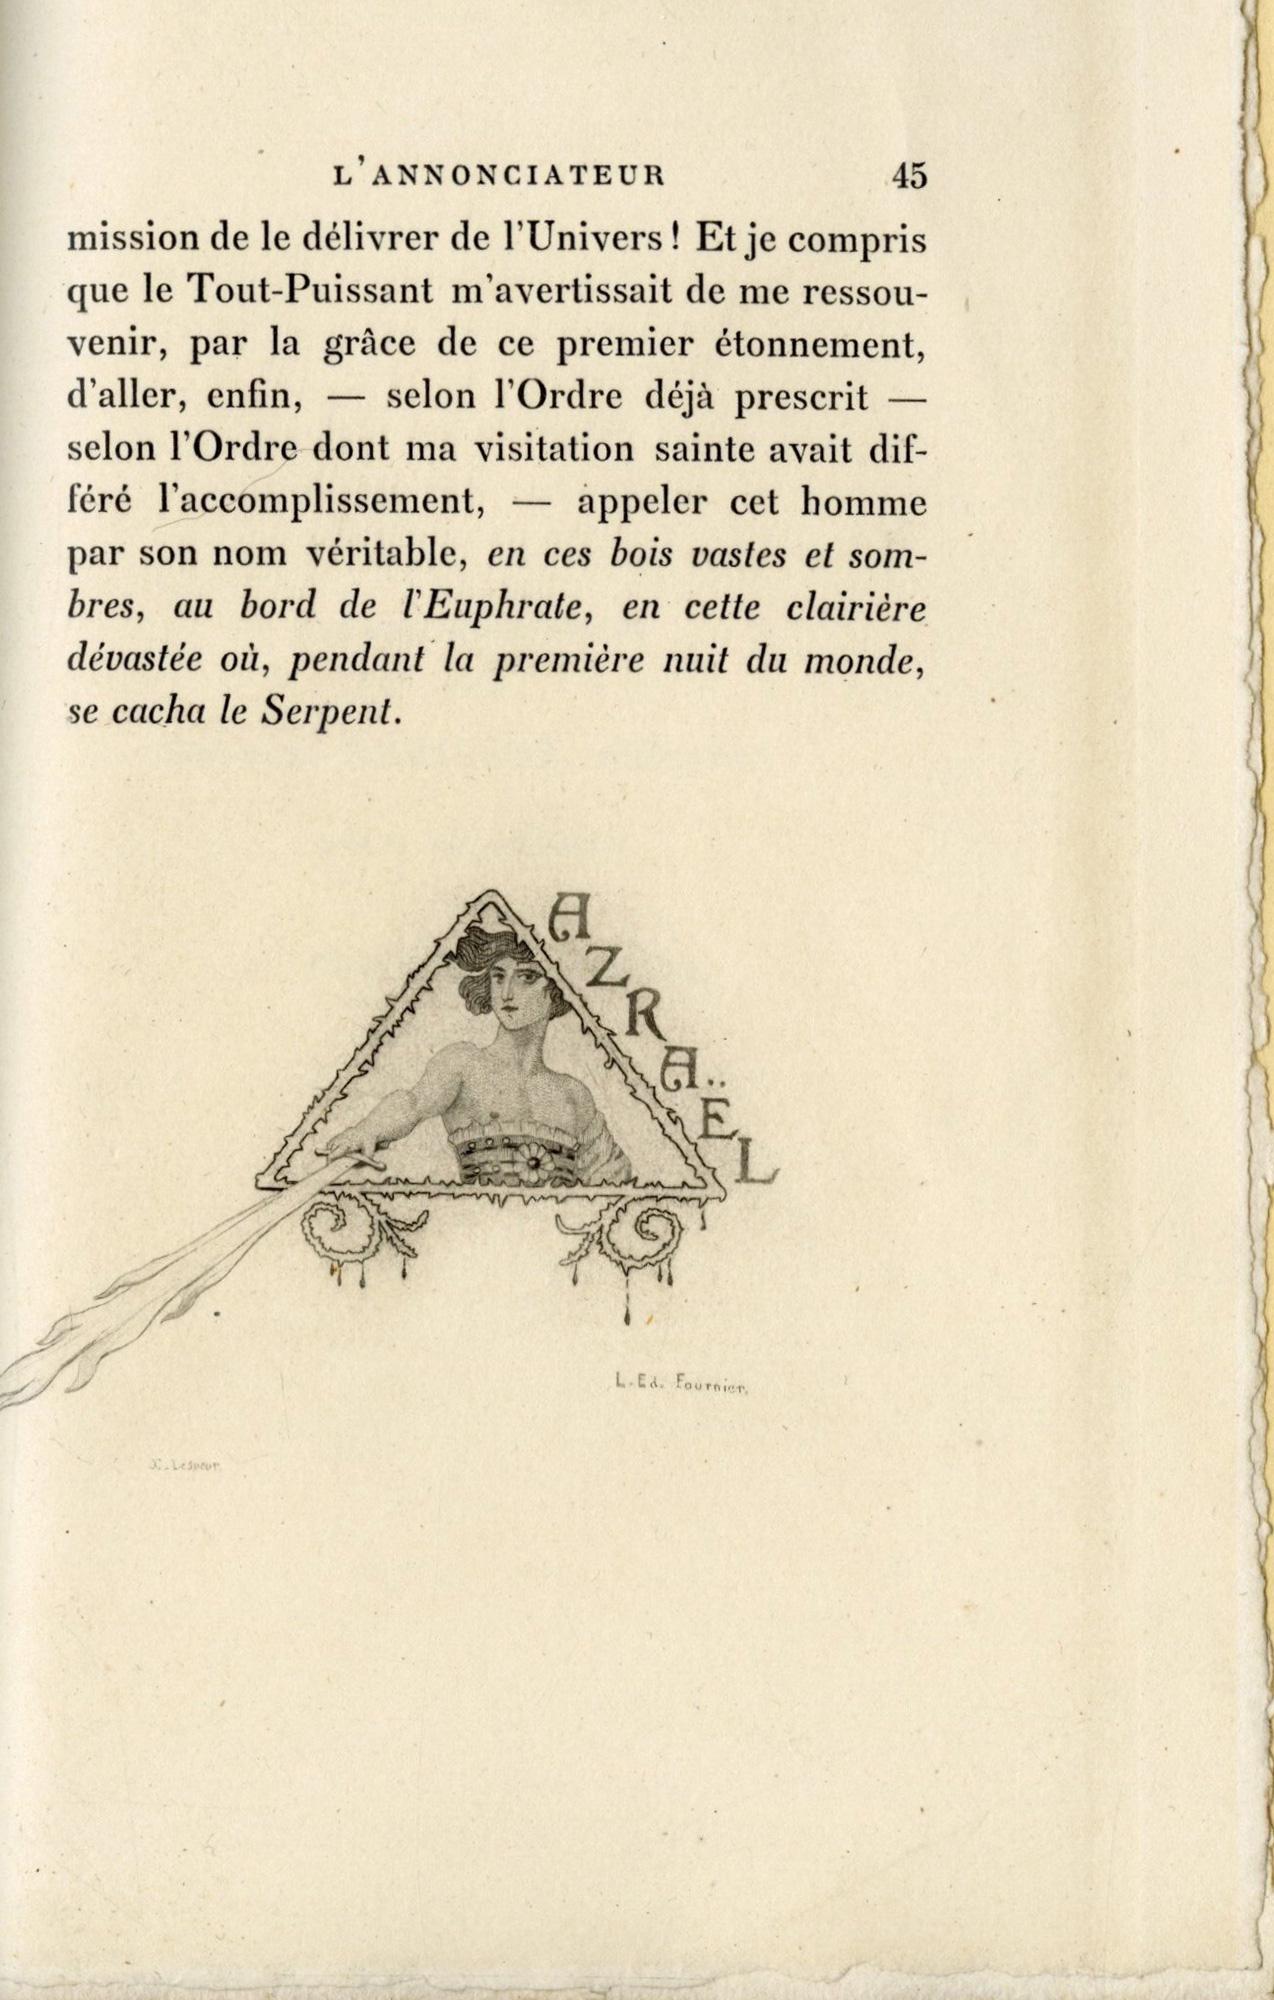 L'ANNONCIATEUR 45
mission de le délivrer de l'Univers ! Et je compris
que le Tout-Puissant m'avertissait de me ressou-
venir, par la grâce de ce premier étonnement,
d'aller, enfin, — selon l'Ordre déjà prescrit —
selon l'Ordre dont ma visitation sainte avait dif-
féré l'accomplissement, — appeler cet homme
par son nom véritable, en ces bois vastes et som-
bres, au bord de l'Euphrate, en cette clairière
dévastée où, pendant la première nuit du monde,
se cacha le Serpent.
AZRAËL
L. Ed. Fournier.
X. Lesueur.